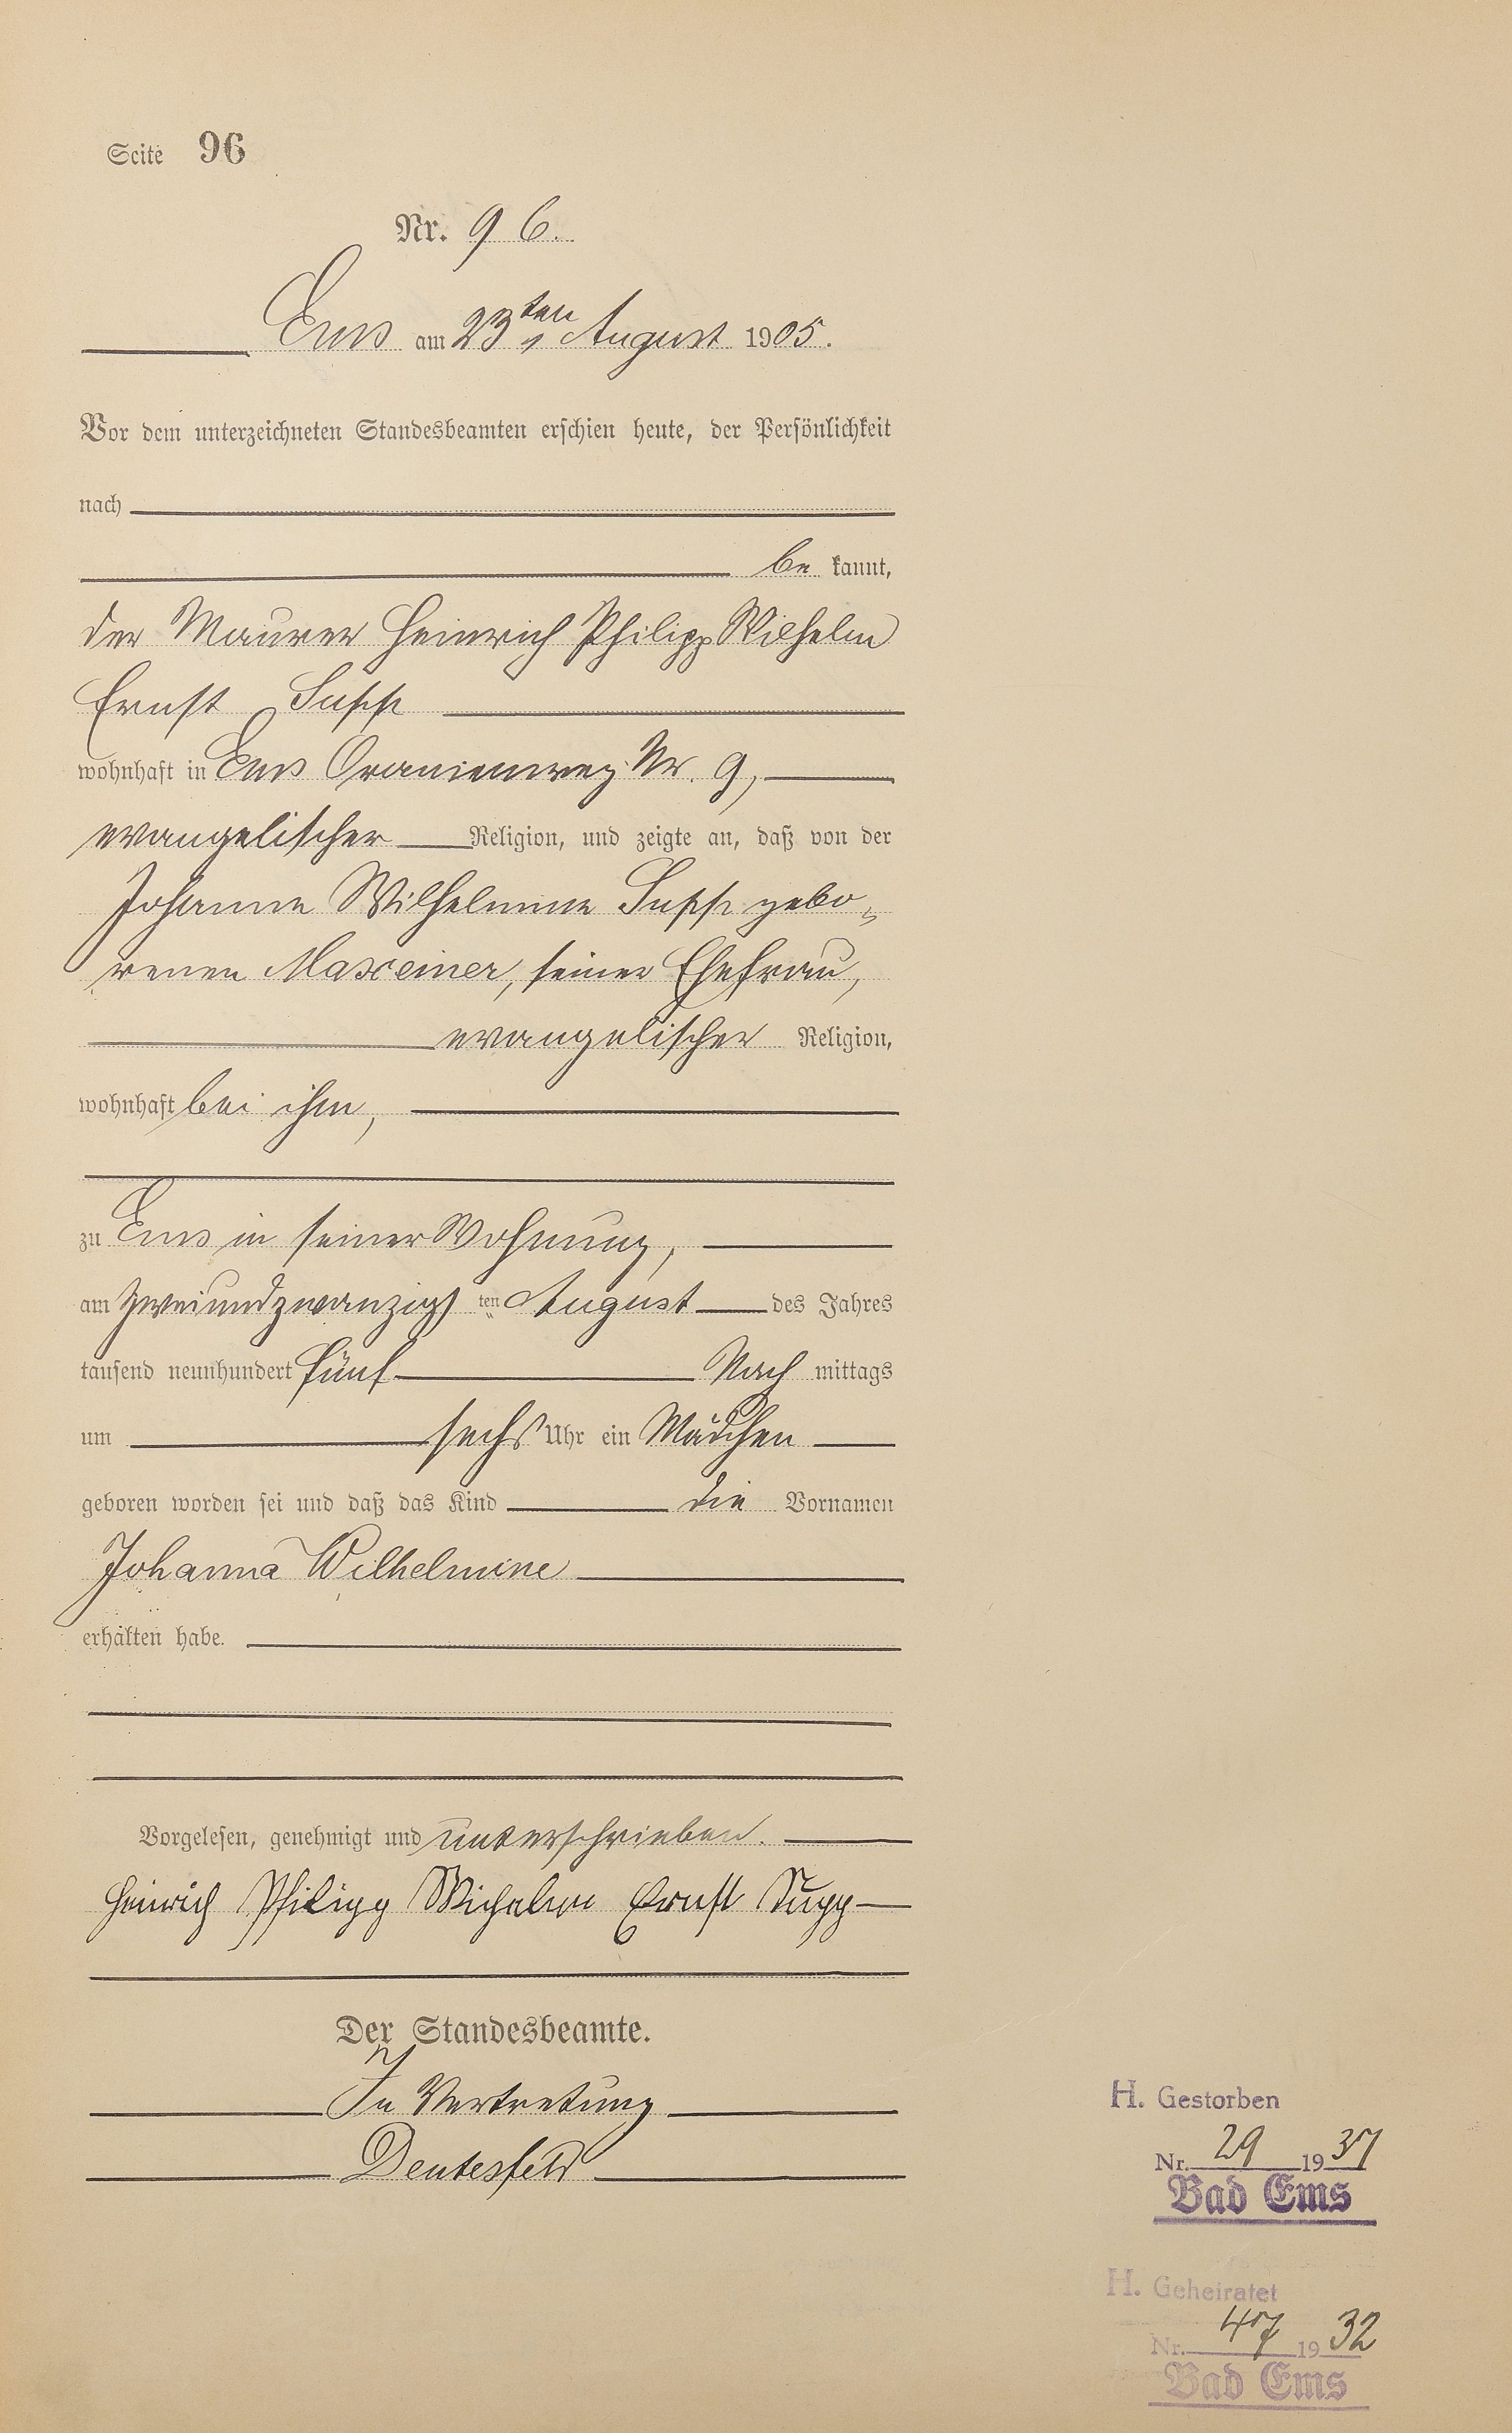 Seite 96
Nr. 96.
Ems am 23ten August 1905.
Vor dem unterzeichneten Standesbeamten erschien heute, der Persönlichkeit
nach
be kannt,
der Maurer Heinrich Philipp Wilhelm
Ernst Supp
wohnhaft in Ems Oranienweg Nr. 9,
evangelischer Religion, und zeigte an, daß von der
Johanne Wilhelmine Supp gebo-
renen Maxeiner, seiner Ehefrau,
evangelischer Religion,
wohnhaft bei ihm,
zu Ems in seiner Wohnung,
am zweiundzwanzigs ten August des Jahres
tausend neunhundert fünf Nach mittags
um sechs Uhr ein Mädchen
geboren worden sei und daß das Kind die Vornamen
Johanna Wilhelmine
erhalten habe.
Vorgelesen, genehmigt und unterschrieben.
Heinrich Philipp Wilhelm Ernst Supp
Der Standesbeamte.
In Vertretung
Deutesfeld
H. Gestorben
Nr. 29 1937
Bad Ems
H. Geheiratet
Nr. 47 1932
Bad Ems